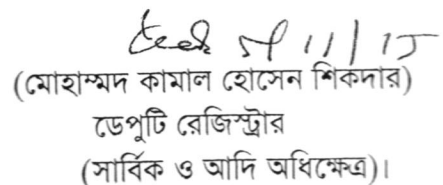 (মোহাম্মদ কামাল হোসেন শিকদার)
ডেপুটি রেজিস্ট্রার
(সার্বিক ও আদি অধিক্ষেত্র)।